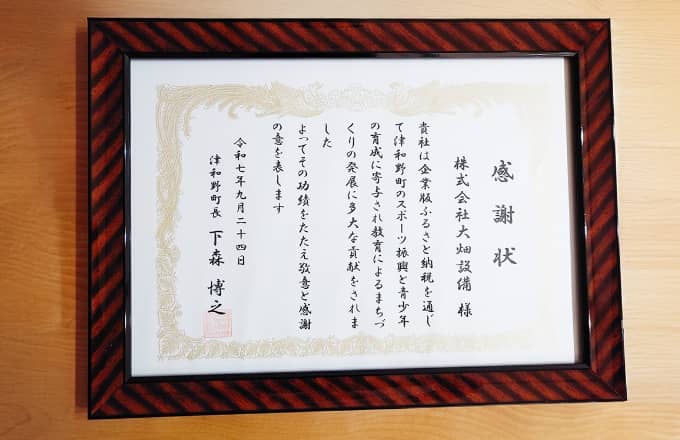 感謝状
株式会社大畑設備 様
貴社は企業版ふるさと納税を通じ
て津和野町のスポーツ振興と青少年
の育成に寄与され教育によるまちづ
くりの発展に多大な貢献をされま
した
よってその功績をたたえ敬意と感謝
の意を表します
令和七年九月二十四日
津和野町長 下森 博之